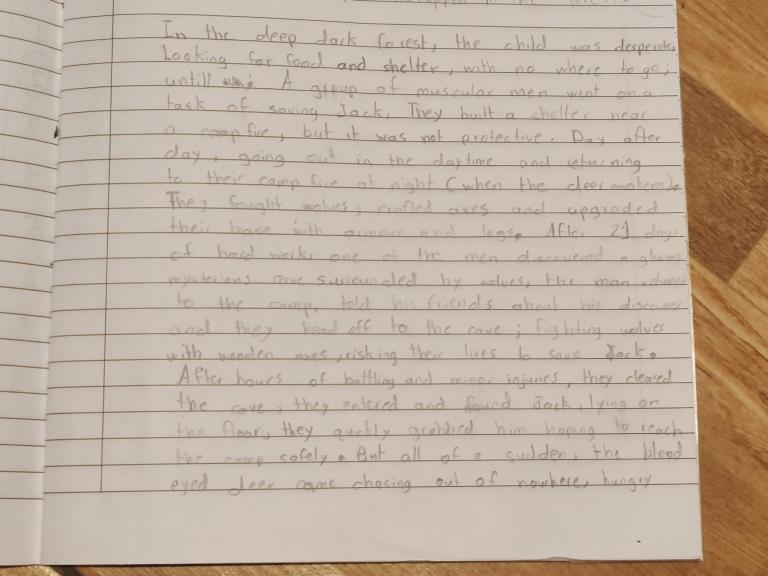 In the deep dark forest, the child was desperate,
Looking for food and shelter, with no where to go;
untill A group of muscular men went on a
task of saving Jack, They built a shelter near
a camp fire, but it was not protective. Day after
day, going out in the daytime and returning
to their camp fire at night (when the deer awakens).
They fought wolves, crafted axes and upgraded
their base with armour and logs. After 21 days
of hard work, one of the men discovered a
mysterious cave surrounded by wolves, the man
to the camp, told his friends about his discovery
and they head off to the cave; fighting wolves
with wooden axes, risking their lives to save Jack.
After hours of battling and minor injuries, they cleared
the cave, they entered and found Jack, lying on
the floor, they quckly grabbed him hoping to reach
the camp safely. But all of a sudden, the blood
eyed deer came chasing out of nowhere, hungry